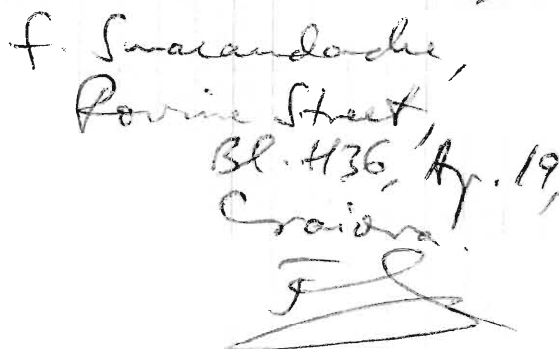 F. Smarandache,
Rovine Street,
Bl. H36, Ap. 19,
Craiova.